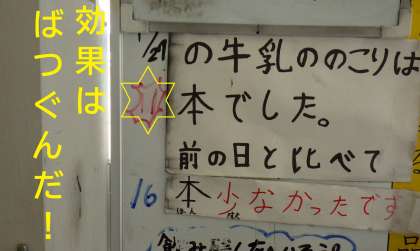 効果は
ばつぐんだ！
1/29 の牛乳ののこりは
本でした。
前の日と比べて
16 本 少なかったです